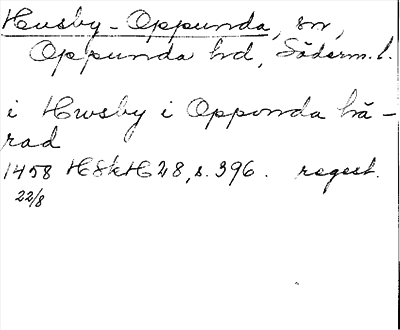 Husby-Oppunda, sn,
Oppunda hd, Söderm. l.
i Hwsby i Opponda hä-
rad
1458 HSkH 28, s. 396. regest.
22/8